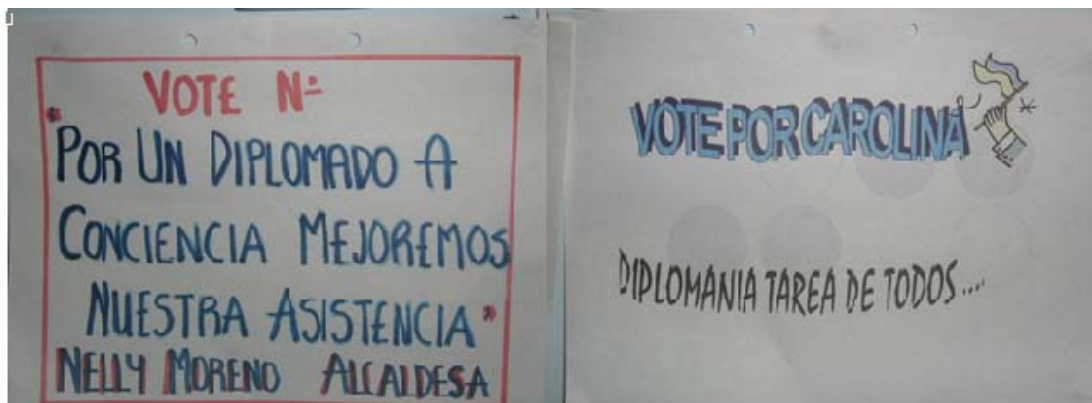 VOTE Nº
"POR UN DIPLOMADO A
CONCIENCIA MEJOREMOS
NUESTRA ASISTENCIA"
NELLY MORENO ALCALDESA
VOTE POR CAROLINA
DIPLOMANIA TAREA DE TODOS....